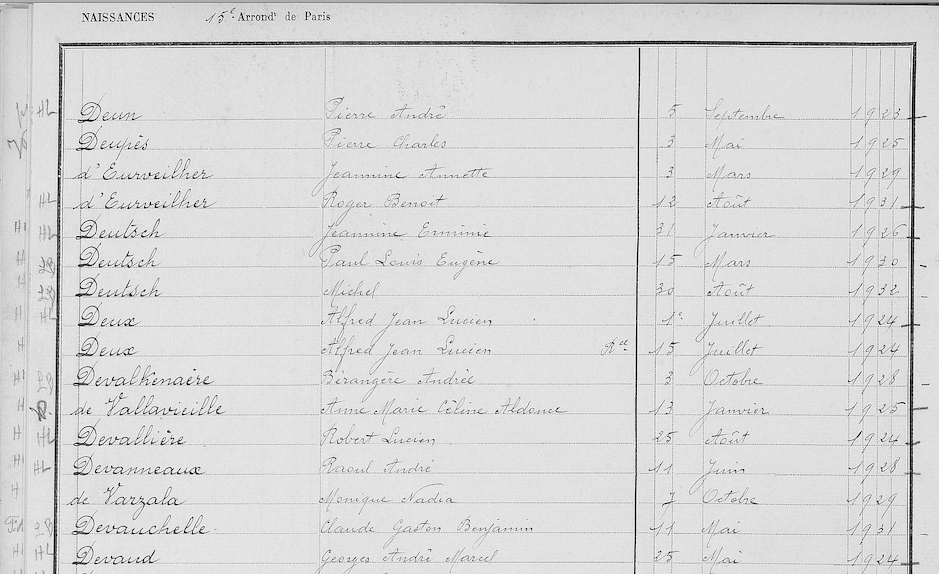 NAISSANCES 15e Arrondt de Paris
Deun Pierre André 5 Septembre 1923
Deupès Pierre Charles 3 Mai 1925
d'Eurveilher Jeannine Annette 3 Mars 1929
d'Eurveilher Roger Benoit 12 Août 1931
Deutsch Jeannine Erminie 31 Janvier 1926
Deutsch Paul Louis Eugène 15 Mars 1930
Deutsch Michel 30 Août 1932
Deux Alfred Jean Lucien 1er Juillet 1924
Deux Alfred Jean Lucien Rct 15 Juillet 1924
Devalkenaère Bérangère Andrée 3 Octobre 1928
de Vallavieille Anne Marie Céline Aldonce 13 Janvier 1925
Devallière Robert Lucien 25 Août 1924
Devanneaux Raoul André 11 Juin 1928
de Varzala Monique Nadia 7 Octobre 1929
Devauchelle Claude Gaston Benjamin 11 Mai 1931
Devaud Georges André Marcel 25 Mai 1924